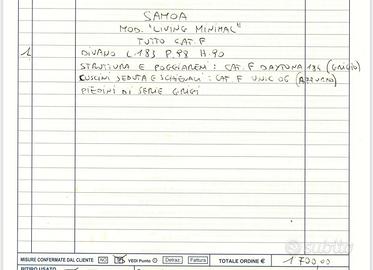 SAMOA
MOD. "LIVING MINIMAL"
TUTTO CAT. F
1 DIVANO L.183 P.98 H.90
STRUTTURA E POGGIARENI: CAT. F DAYTONA 194 (GRIGIO)
CUSCINI SEDUTA E SCHIENALI: CAT F UNIC 06 (AZZURRO)
PIEDINI DI SERIE GRIGI
MISURE CONFERMATE DAL CLIENTE NO SI VEDI Punto Detraz. Fattura TOTALE ORDINE € 1700.00
RITIRO USATO
subito